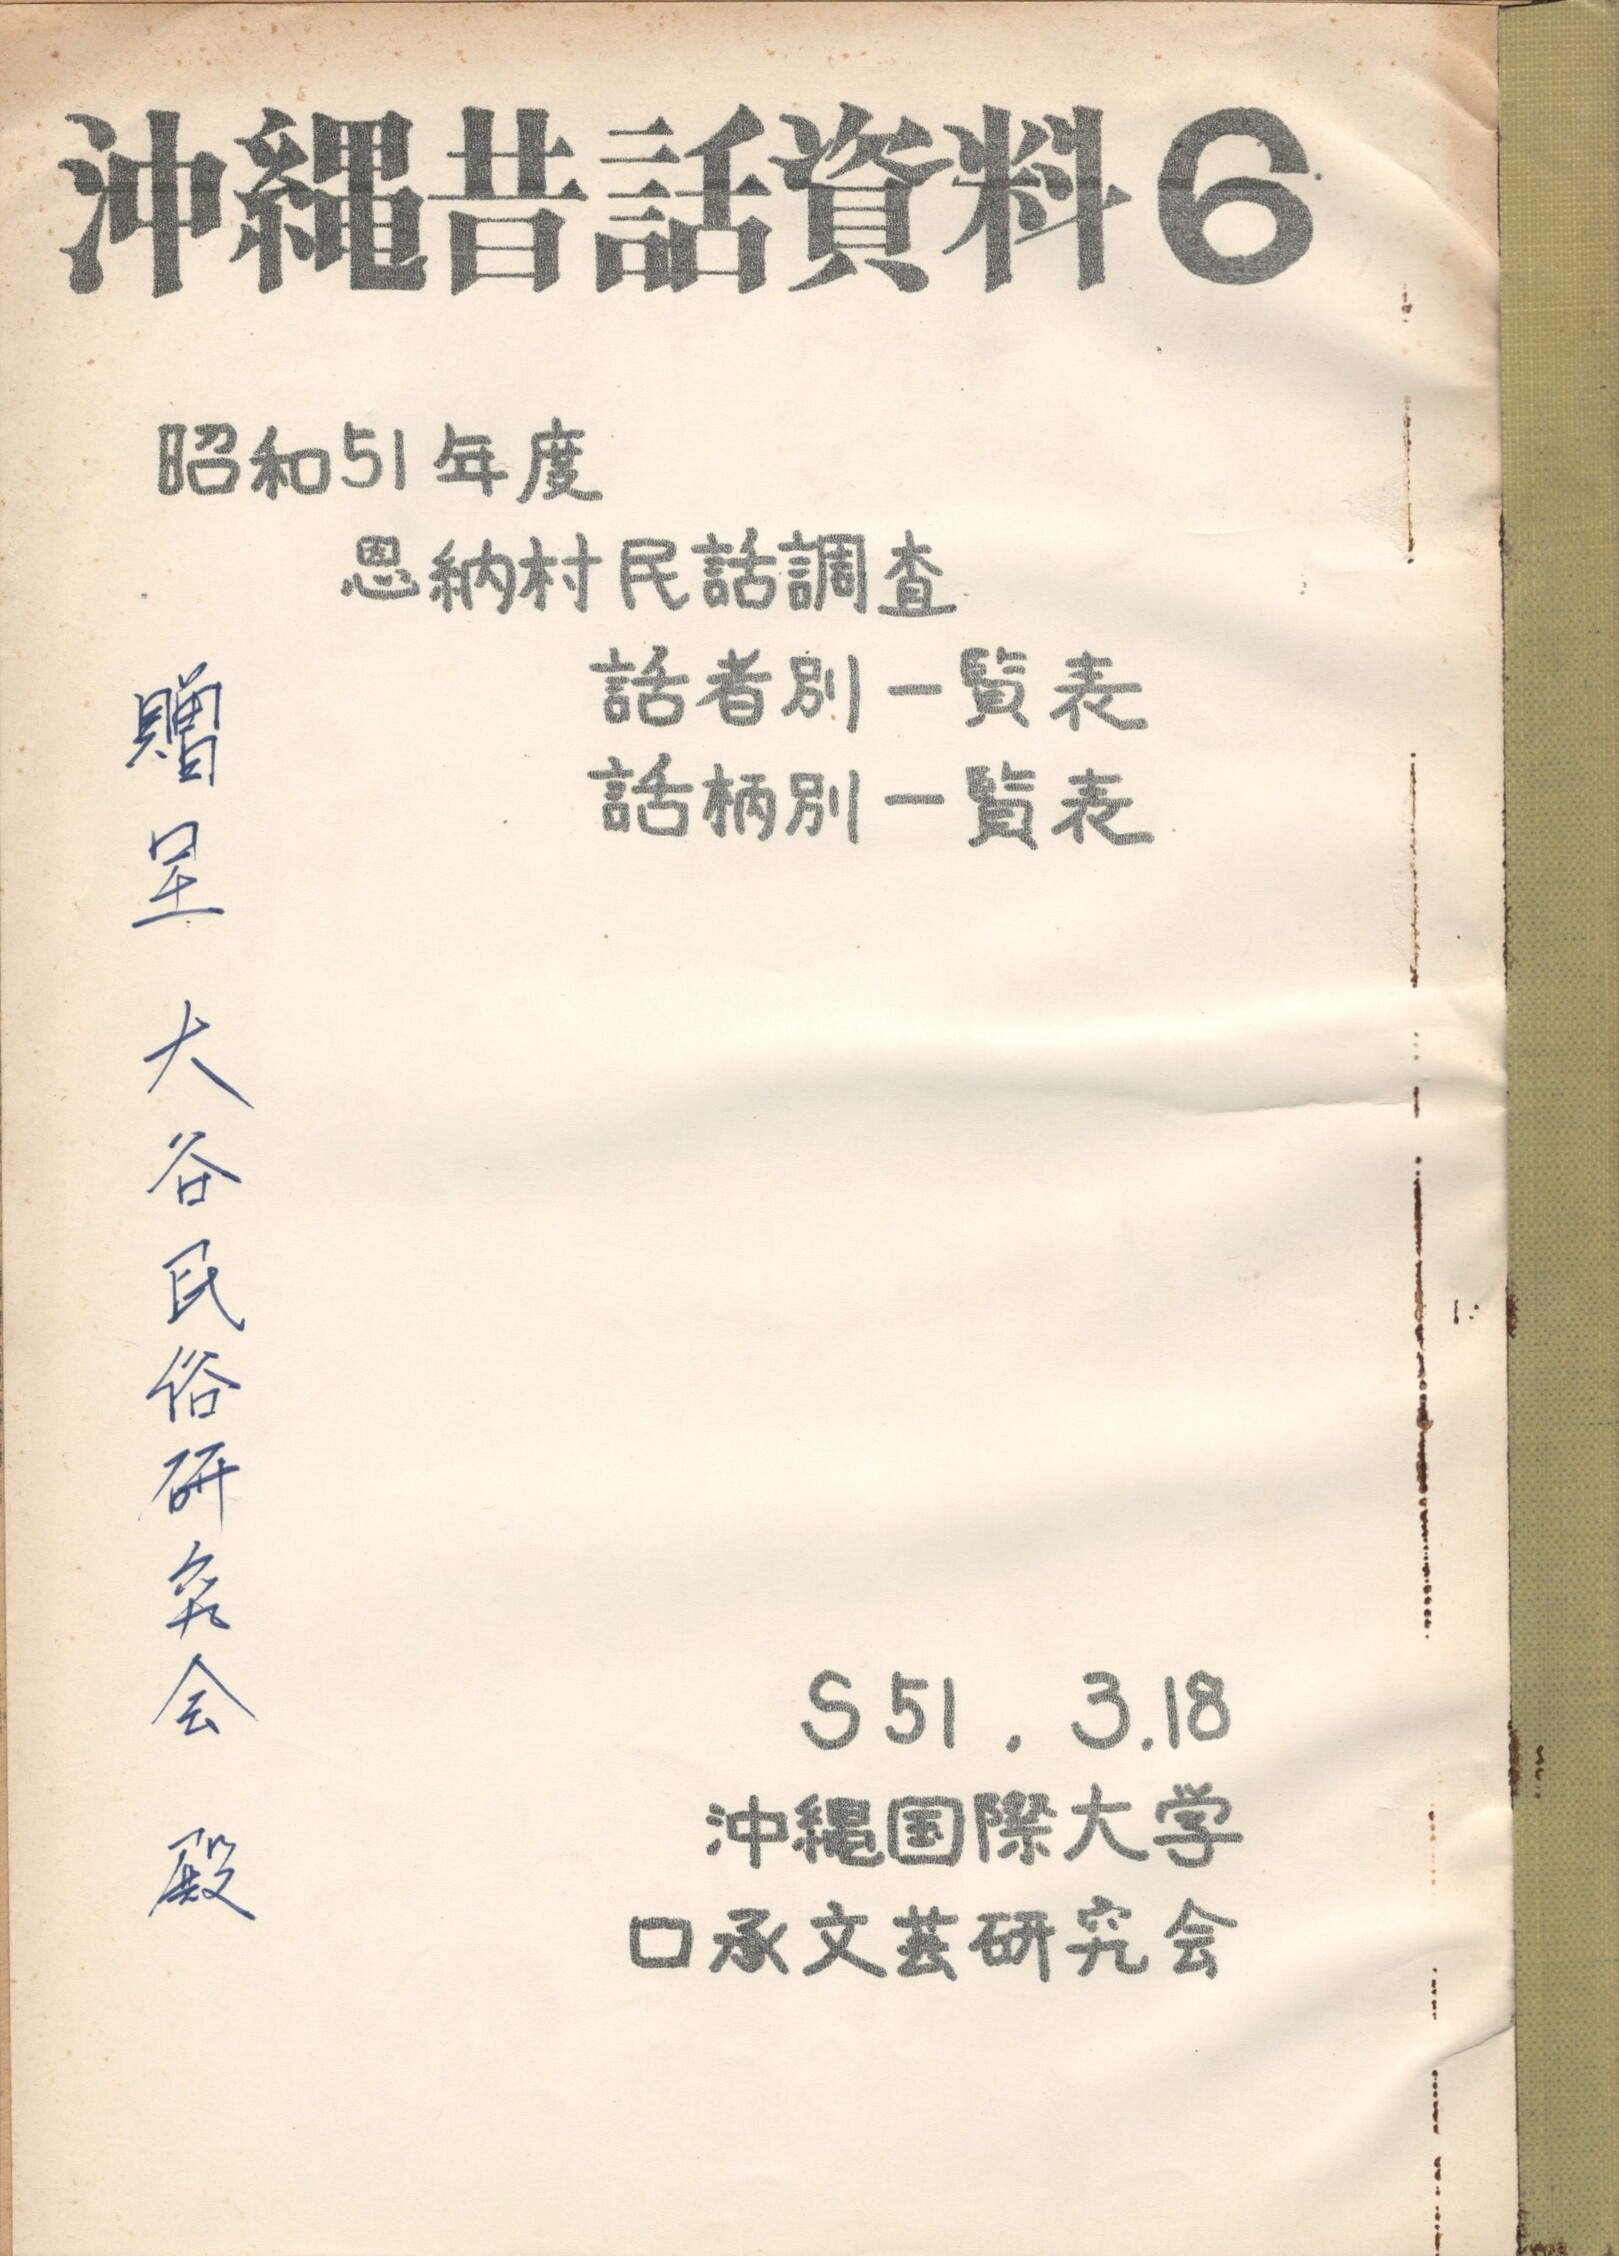 沖縄昔話資料6
昭和51年度
恩納村民話調査
話者別一覧表
話柄別一覧表
贈呈 大谷民俗研究会 殿
S51.3.18
沖縄国際大学
口承文芸研究会